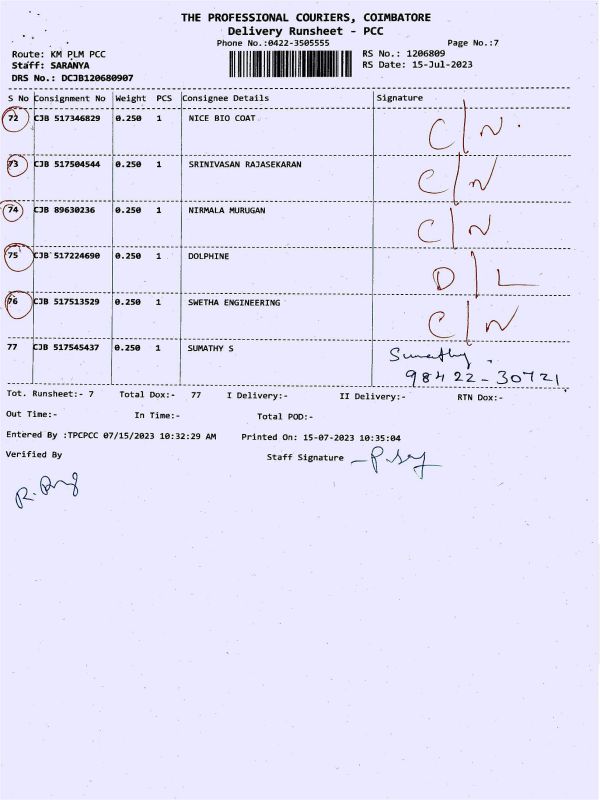 THE PROFESSIONAL COURIERS, COIMBATORE
Delivery Runsheet - PCC
Phone No.:0422-3505555 Page No.:7
Route: KM PLM PCC RS No.: 1206809
Staff: SARANYA RS Date: 15-Jul-2023
DRS No.: DCJB120680907
S No Consignment No Weight PCS Consignee Details Signature
72 CJB 517346829 0.250 1 NICE BIO COAT C/N.
73 CJB 517504544 0.250 1 SRINIVASAN RAJASEKARAN C/N
74 CJB 89630236 0.250 1 NIRMALA MURUGAN C/N
75 CJB 517224690 0.250 1 DOLPHINE D/L
76 CJB 517513529 0.250 1 SWETHA ENGINEERING C/N
77 CJB 517545437 0.250 1 SUMATHY S Sumathy
98422-30721
Tot. Runsheet:- 7 Total Dox:- 77 I Delivery:- II Delivery:- RTN Dox:-
Out Time:- In Time:- Total POD:-
Entered By :TPCPCC 07/15/2023 10:32:29 AM Printed On: 15-07-2023 10:35:04
Verified By Staff Signature